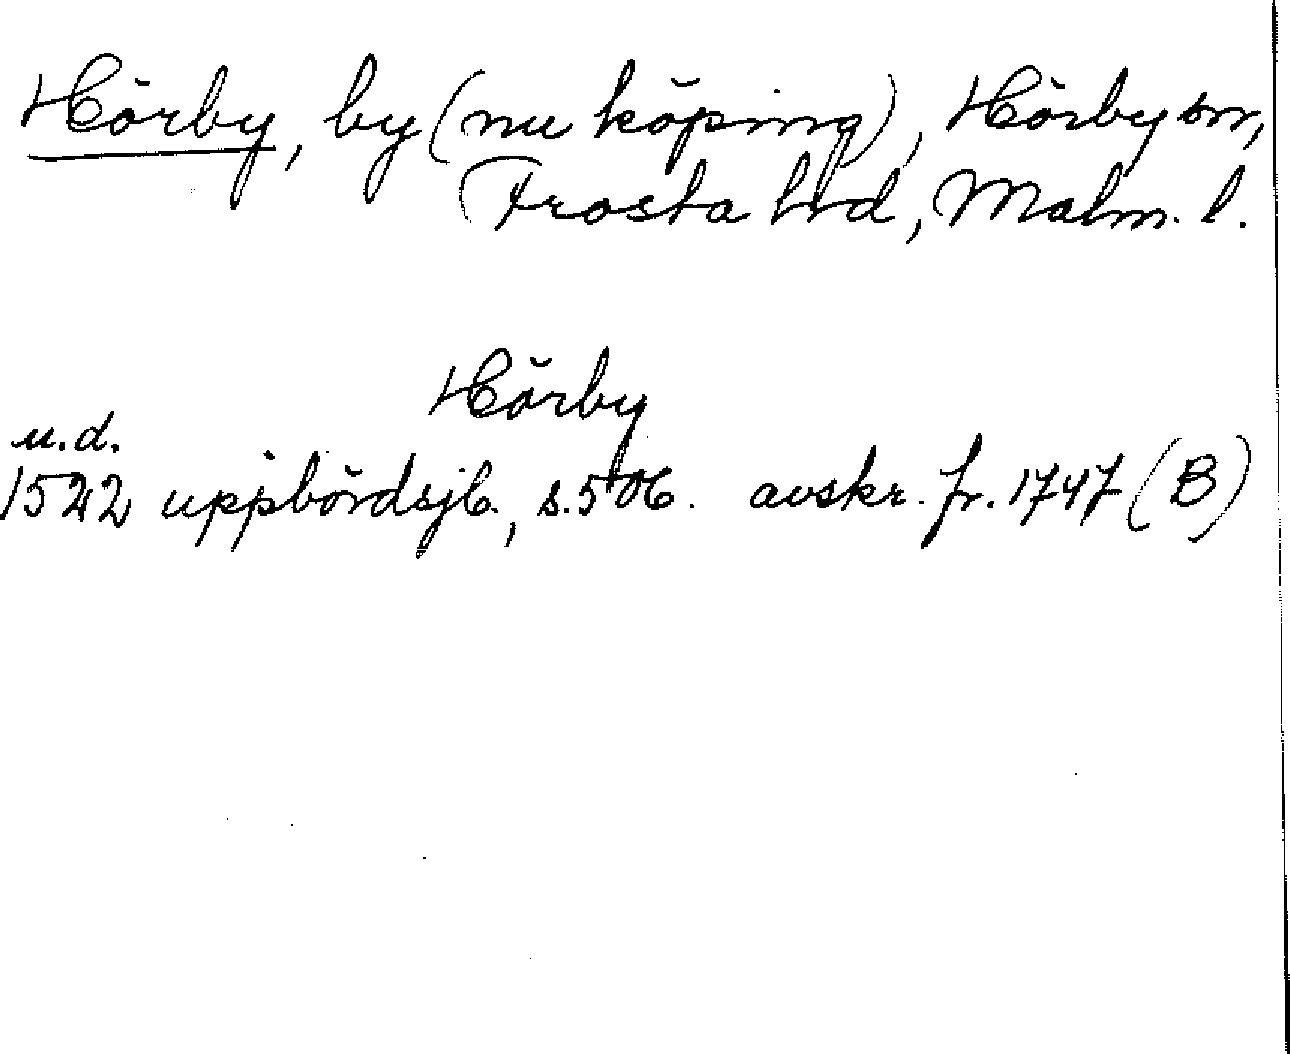 Hörby, by (nu köping), Hörby sn,
Frosta hrd, Malm. l.
Hörby
u.d.
1522 uppbördsjb., s. 506. avskr. fr. 1747 (B)